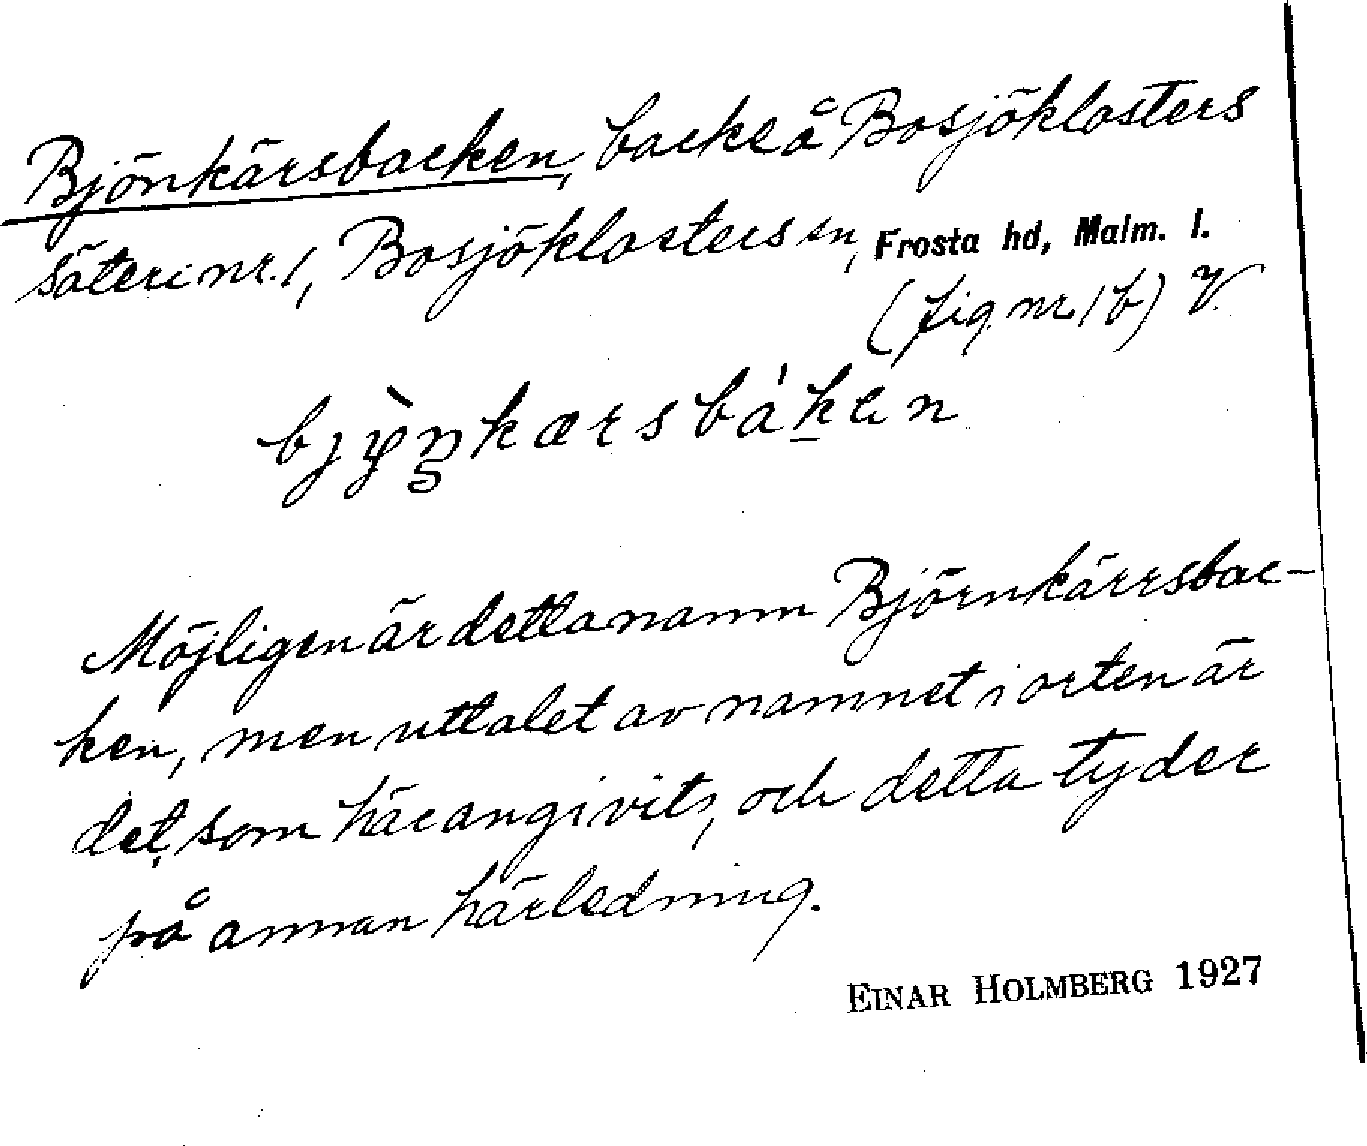 Björnkärsbacken, backe å Bosjöklosters
säteri nr. 1, Bosjöklosters sn, Frosta hd, Malm. l.
(fig. nr. 1 b) V.
kærsbákan
Möjligen är detta namn Björnkärrsbac-
ken, men uttalet av namnet i orten är
det, som här angivits, och detta tyder
på annan härledning.
EINAR HOLMBERG 1927